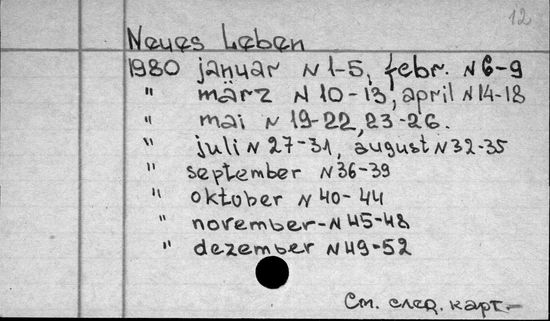 12
Neues Leben
1980 januar N 1-5, febr. N 6-9
" märz N 10-13, april N 14-18
" mai N 19-22, 23-26.
" juli N 27-31, august N 32-35
" september N 36-39
" oktober N 40-44
" november-N 45-48
" dezember N 49-52
См. след. карт.-